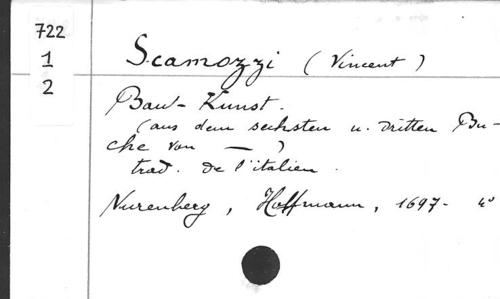 722
1
2
Scamozzi (Vincent)
Bau-Kunst.
(aus dem sechsten u. dritten Bu-
che von — )
trad. de l'italien.
Nurenberg, Hoffmann, 1697- 4°